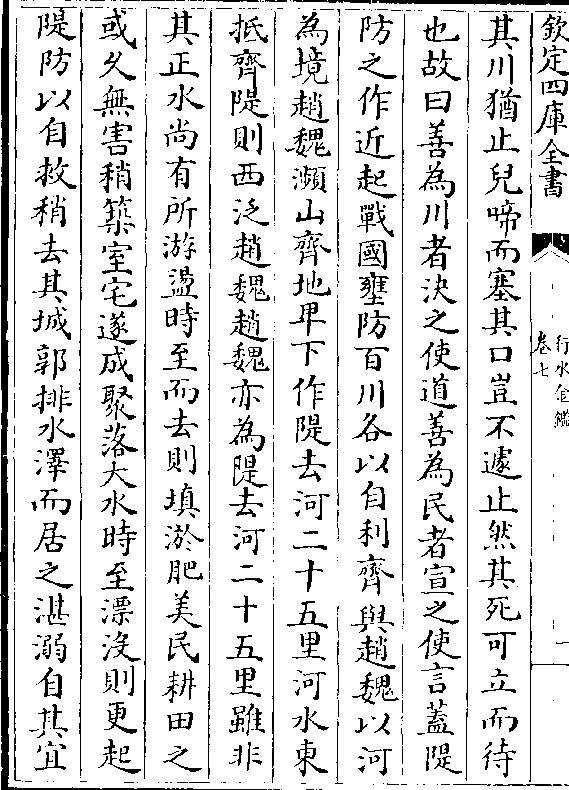 欽定四庫全書
行水金鑑
卷七
一
其川猶止兒啼而塞其口豈不遽止然其死可立而待
也故曰善為川者決之使道善為民者宣之使言蓋隄
防之作近起戰國壅防百川各以自利齊與趙魏以河
為境趙魏瀕山齊地卑下作隄去河二十五里河水東
抵齊隄則西泛趙魏趙魏亦為隄去河二十五里雖非
其正水尚有所游盪時至而去則填淤肥美民耕田之
或久無害稍築室宅遂成聚落大水時至漂沒則更起
隄防以自救稍去其城郭排水澤而居之湛溺自其宜